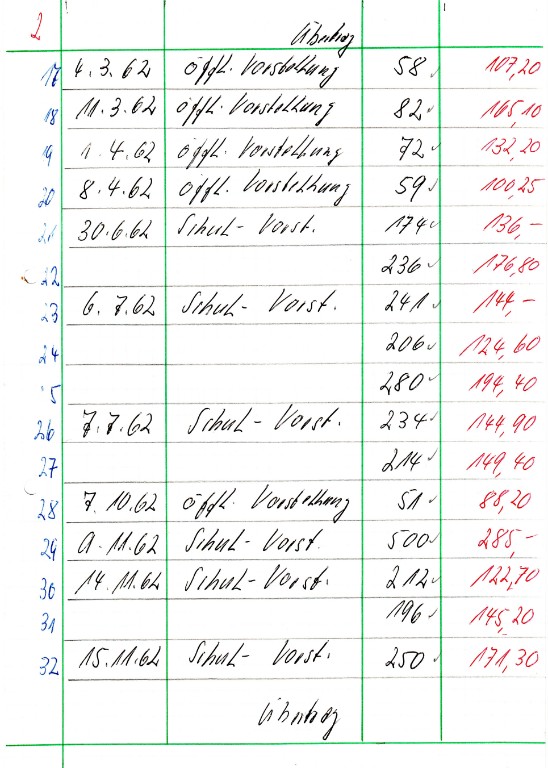 2
Übertrag
17 4.3.62 öffl. Vorstellung 58 107,20
18 11.3.62 öffl. Vorstellung 82 165,10
19 1.4.62 öffl. Vorstellung 72 132,20
20 8.4.62 öffl. Vorstellung 59 100,25
21 30.6.62 Schul-Vorst. 174 136,-
22 236 176,80
23 6.7.62 Schul-Vorst. 241 144,-
24 206 124,60
5 280 194,40
26 7.7.62 Schul-Vorst. 234 144,90
27 214 149,40
28 7.10.62 öffl. Vorstellung 51 88,20
29 11.62 Schul-Vorst. 500 285,-
30 14.11.62 Schul-Vorst. 212 122,70
31 196 145,20
32 15.11.62 Schul-Vorst. 250 171,30
Übertrag